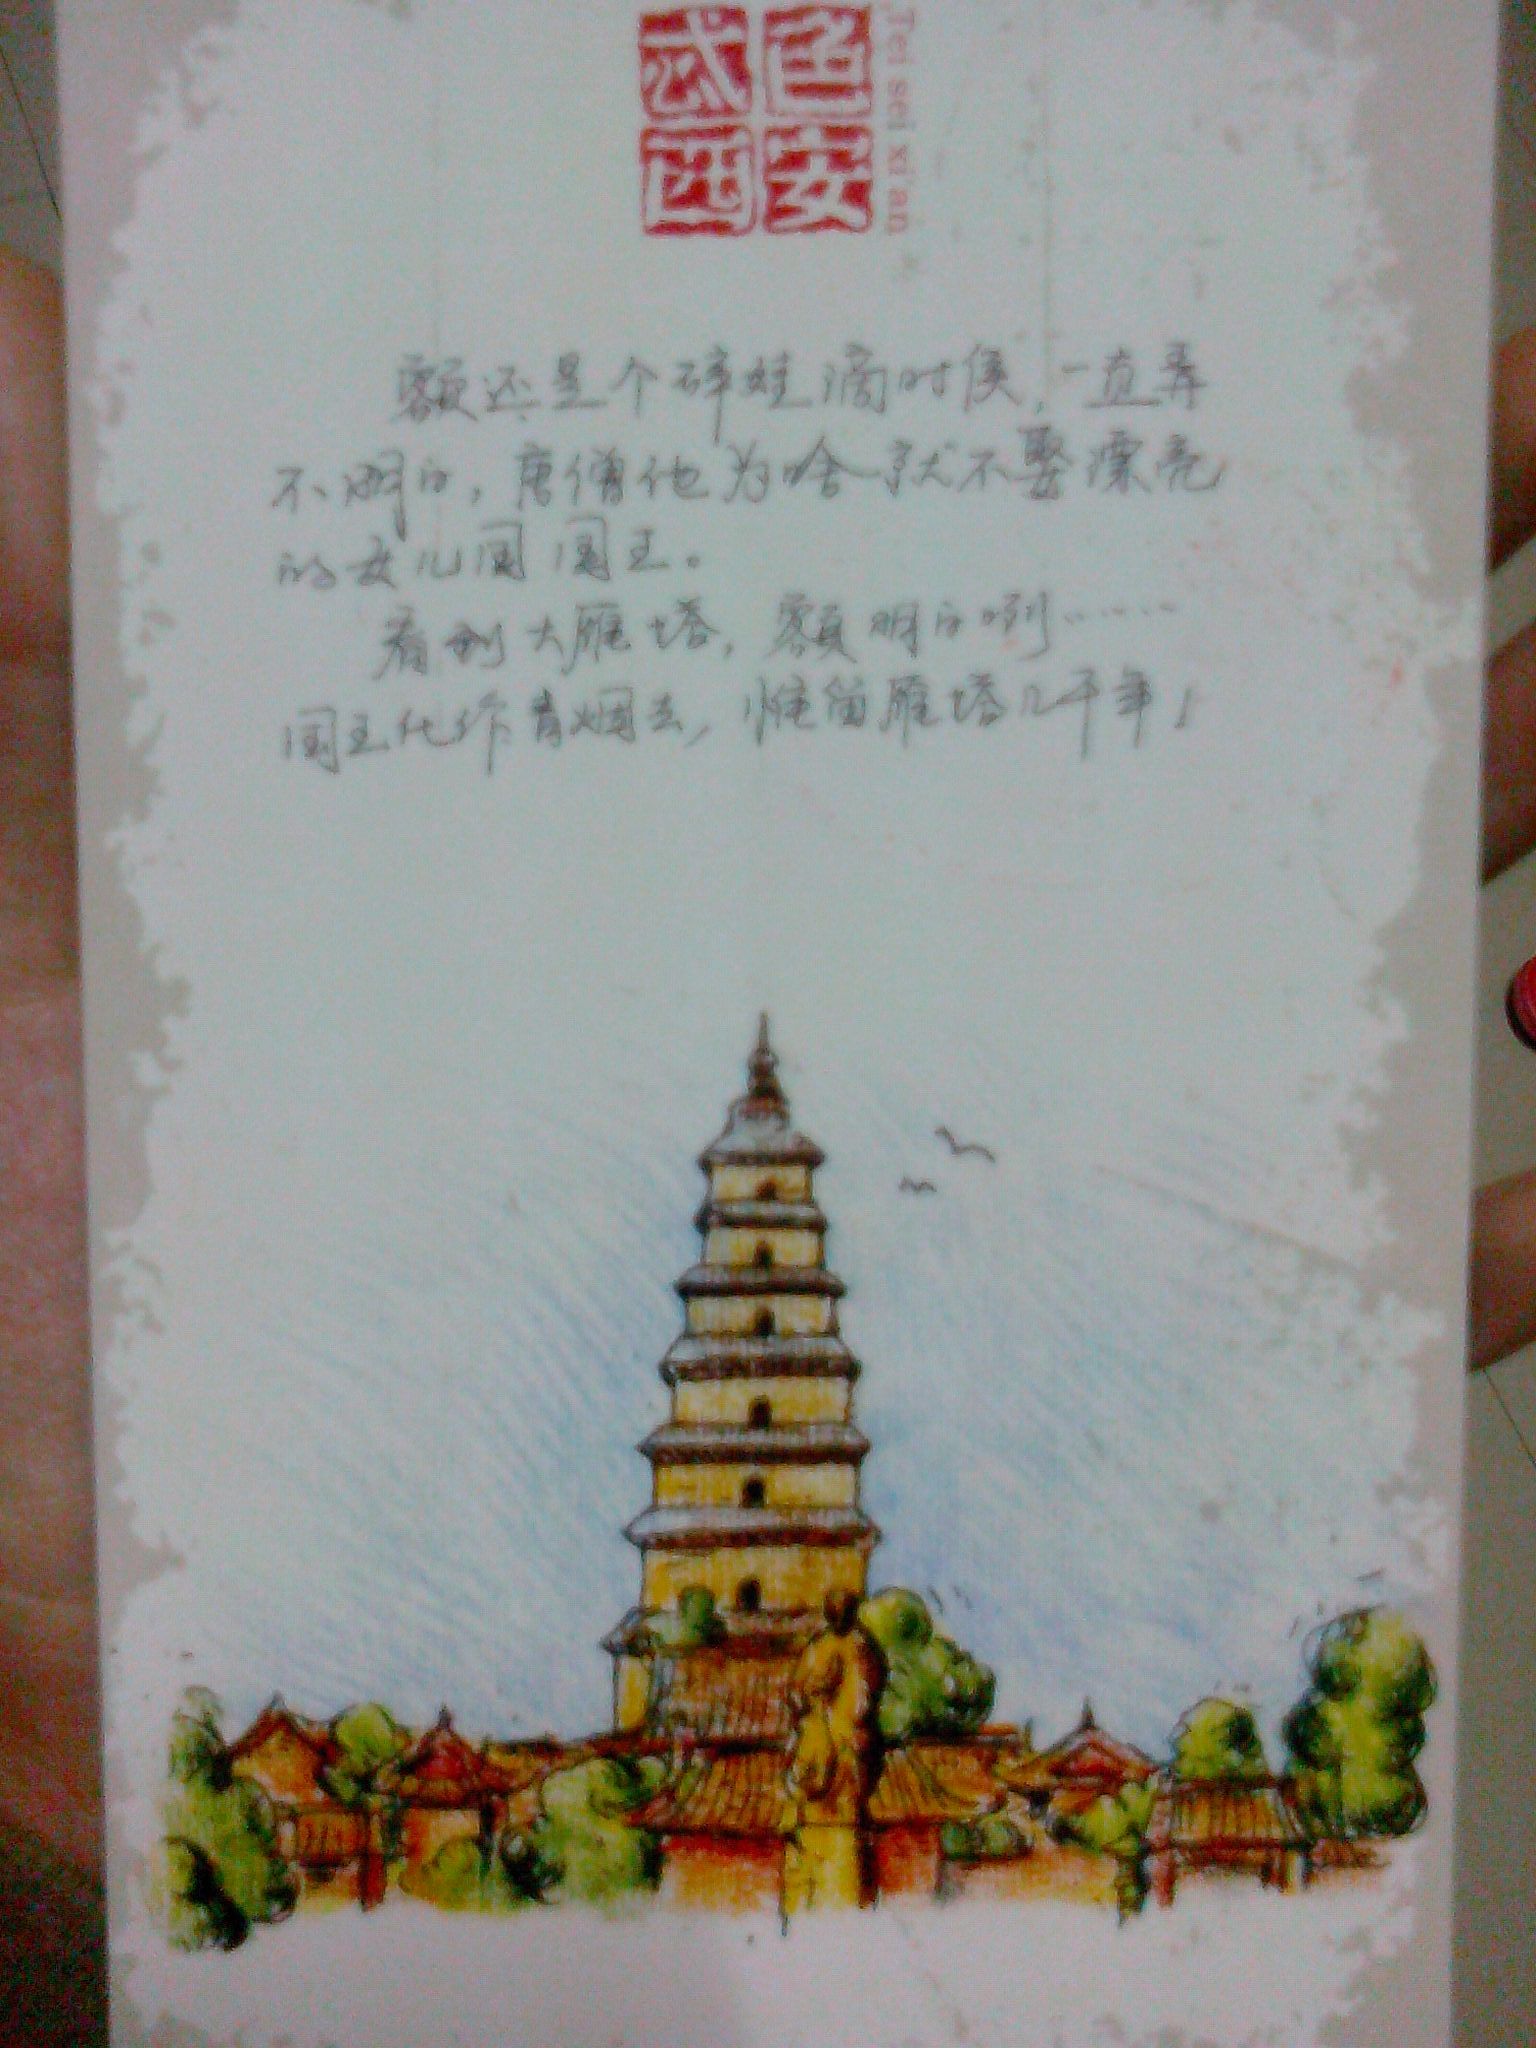 忒色
西安
Tei sei xi'an
额还是个碎娃滴时侯，一直弄
不明白，唐僧他为啥就不娶漂亮
的女儿国国王。
看到大雁塔，额明白咧……
国王化作青烟去，惟留雁塔几千年！